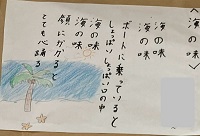 〈海の味〉
海の味
海の味
ボートに乗っていると
しょっぱいしょっぱい口の中
海の味
海の味
顔にかかると
とても心踊る